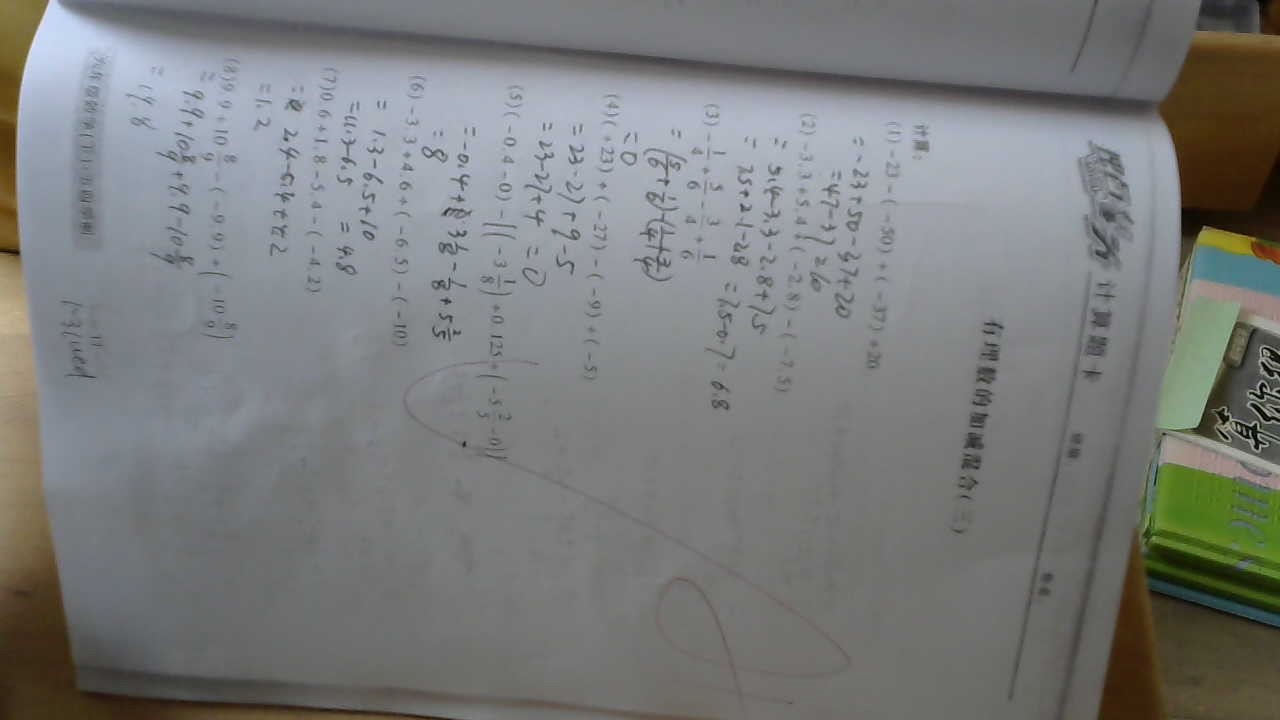 计算题卡
班级:
姓名:
有理数的加减混合(三)
计算:
(1)-23-(-50)+(-37)+20
=-23+50-37+20
=47-37=10
(2)-3.3+5.4+(-2.8)-(-7.5)
= 5.4-3.3-2.8+7.5
= 7.5+2.1-2.8 =7.5-0.7=6.8
(3)-1/4+5/6-3/4+1/6
=(5/6+1/6)-(1/4+3/4)
=0
(4)(+23)+(-27)-(-9)+(-5)
=23-27+9-5
=23-27+4 =0
(5)(-0.4-0)-[(-3 1/8)+0.125+(-5 2/5-0)]
=-0.4+3 1/8-1/8+5 2/5
=8
(6)-3.3+4.6+(-6.5)-(-10)
= 1.3-6.5+10
=11.3-6.5 =4.8
(7)0.6+1.8-5.4-(-4.2)
= 2.4-5.4+4.2
=1.2
(8)9.9+10 8/9-(-9.9)+(-10 8/9)
=9.9+10 8/9+9.9-10 8/9
=19.8
六年级数学(下)·五四学制
11